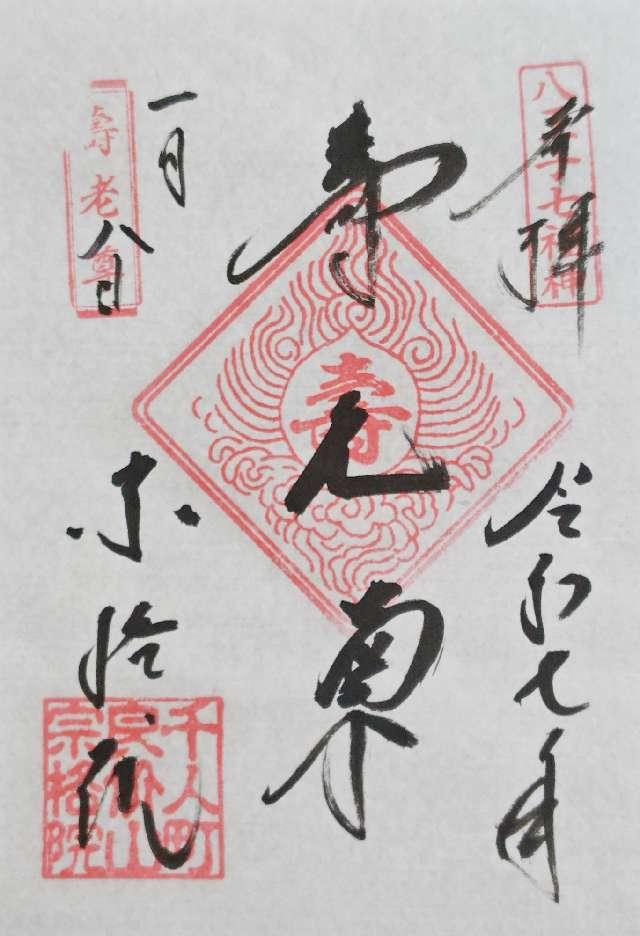 八王子七福神
奉拝
令和七年
壽
寿老尊
一月八日
壽老尊
宗格院
千人町
良价山
宗格院